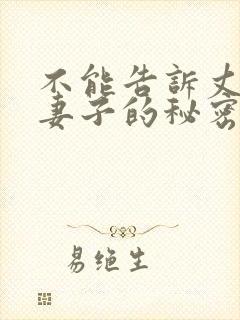 不能告訴丈
妻子的秘密
易绝生